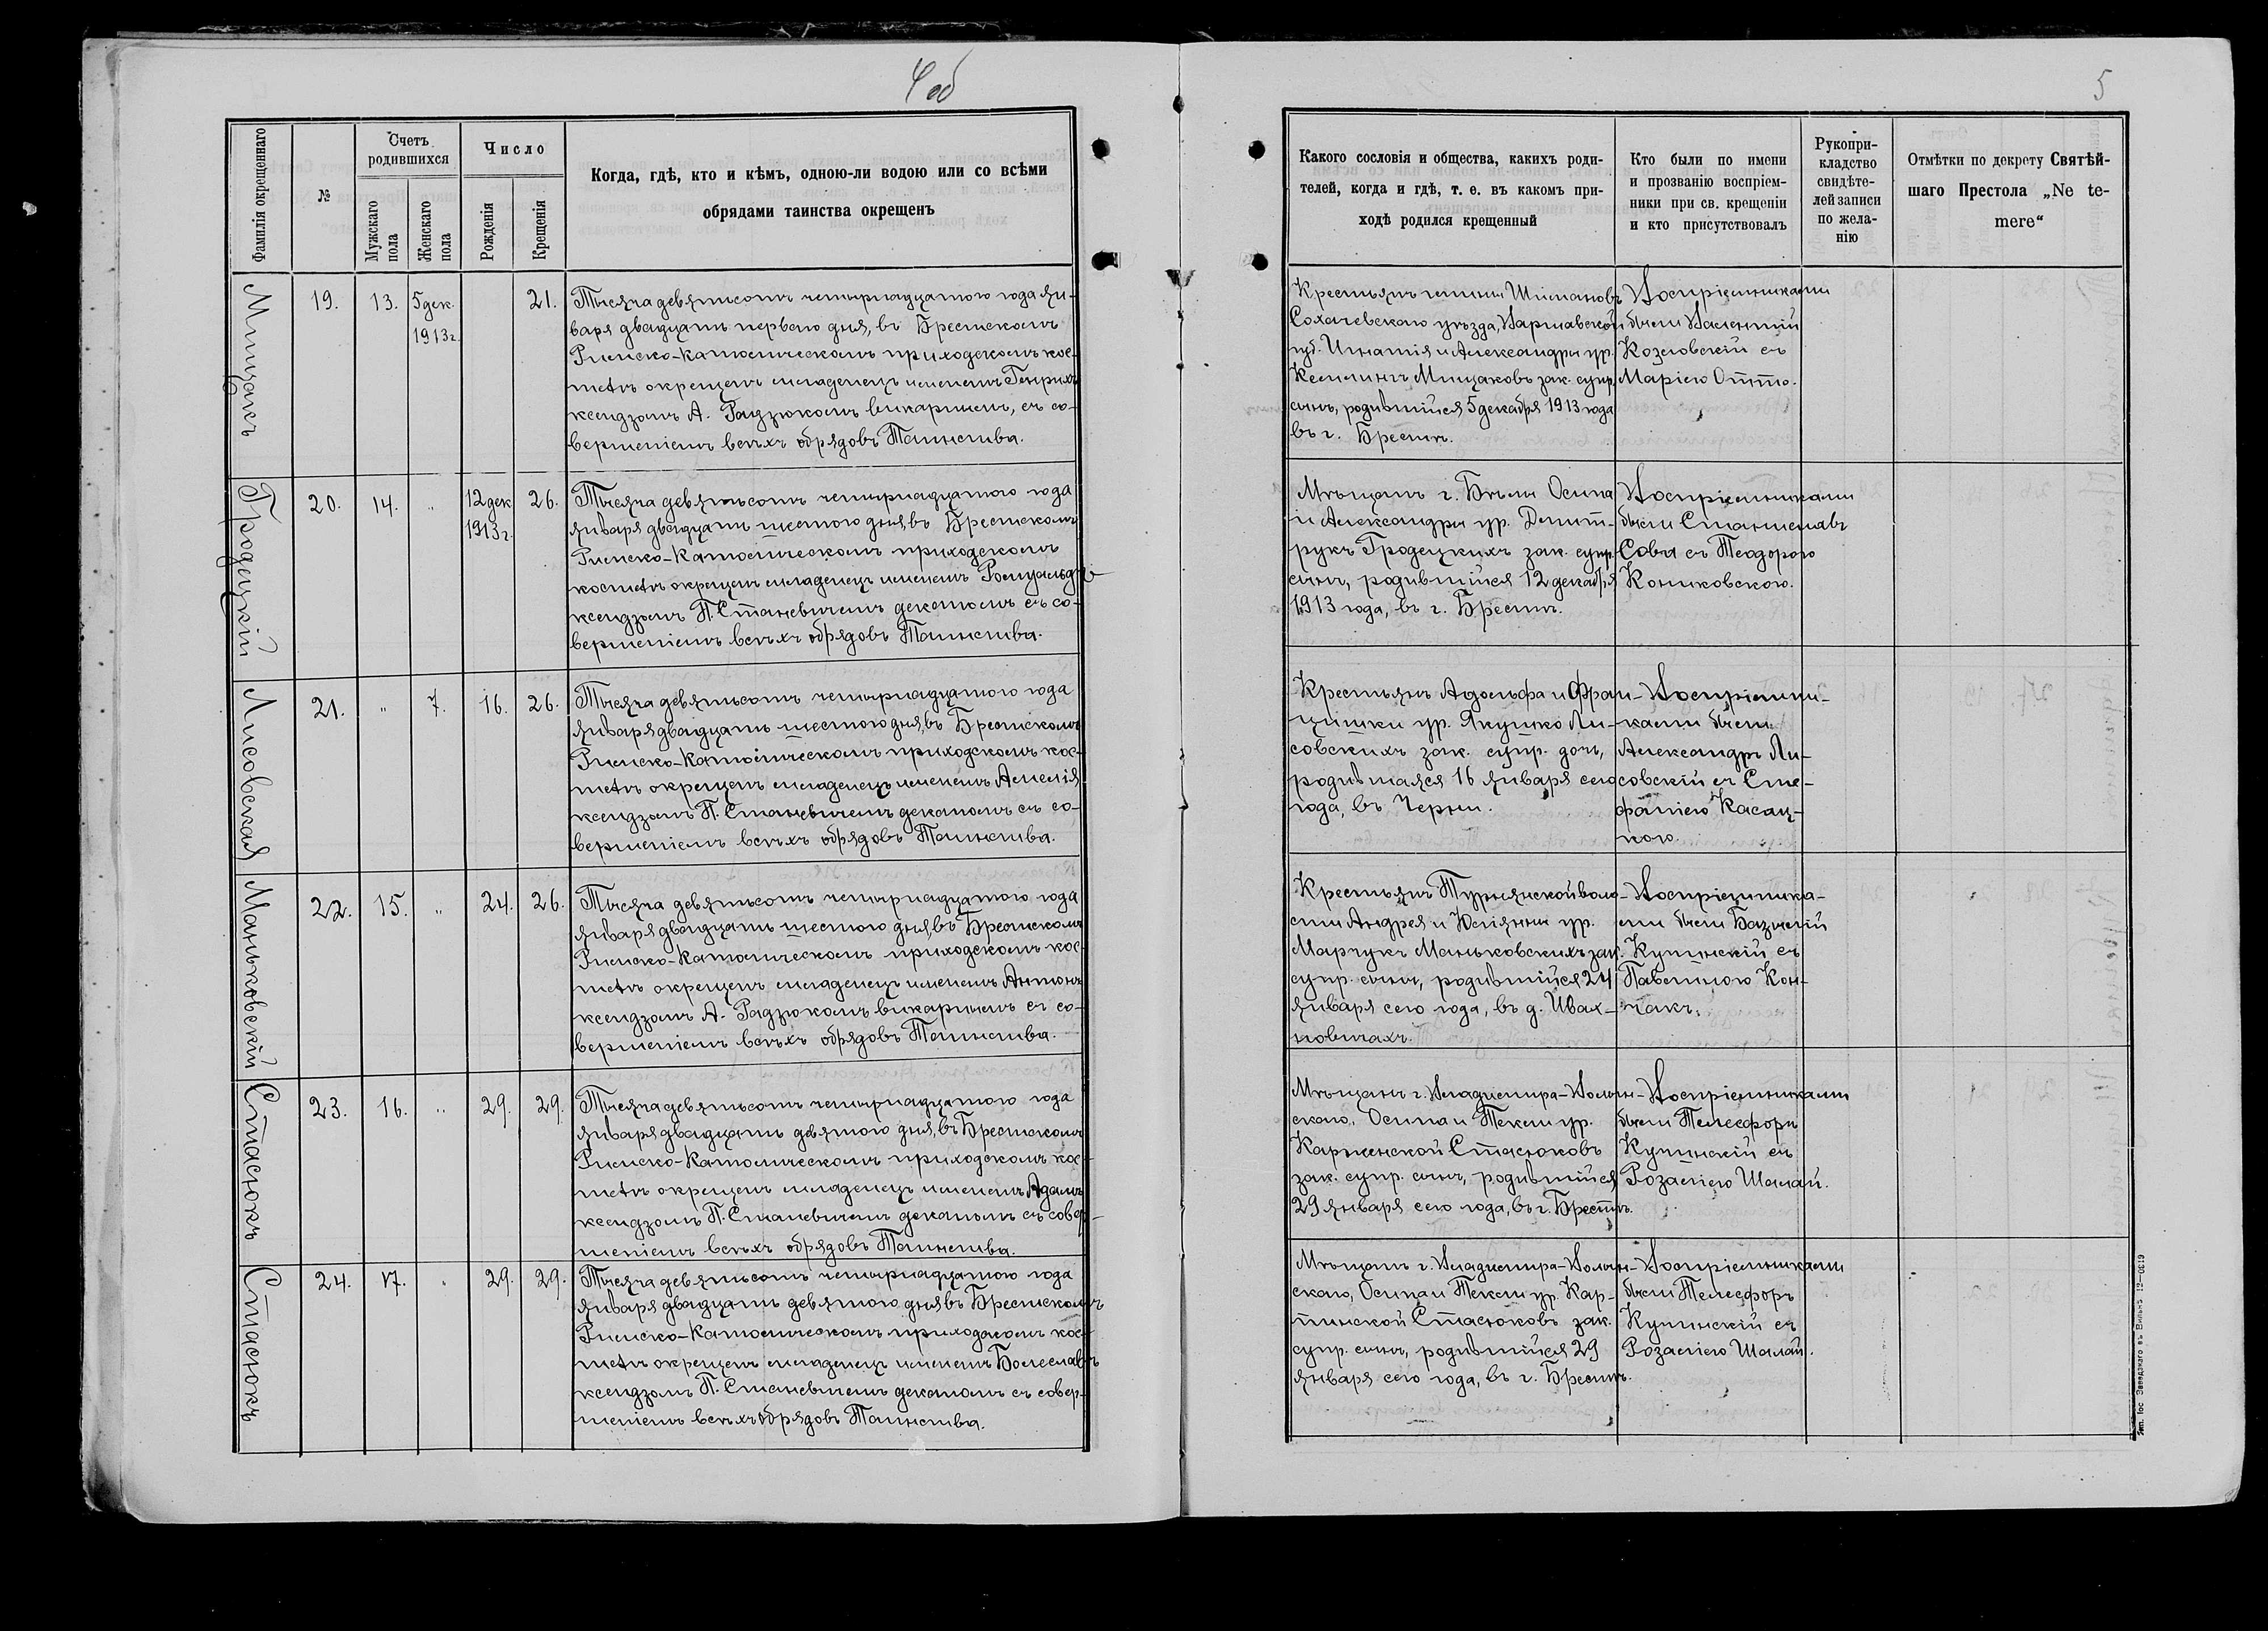 4 об
Фамилія окрещеннаго
№
Счетъ
родившихся
Мужскаго
пола
Женскаго
пола
Число
Рожденія
Крещенія
Когда, гдѣ, кто и кѣмъ, одною-ли водою или со всѣми
обрядами таинства окрещенъ
Мицакъ
19.
13.
5 дек.
1913 г.
21.
Тысяча девятьсотъ четырнадцатого года ян-
варя двадцать первого дня, въ Брестскомъ
Римско-Католическомъ приходскомъ кос-
телѣ окрещенъ младенецъ именемъ Генрихъ
ксендзомъ А. Радзюкомъ викаріемъ, съ со-
вершеніемъ всѣхъ обрядовъ Таинства.
Гродецкій
20.
14.
"
12 дек
1913 г.
26.
Тысяча девятьсотъ четырнадцатого года
января двадцать шестого дня, въ Брестскомъ
Римско-Католическомъ приходскомъ
костелѣ окрещенъ младенецъ именемъ Ромуальдъ
ксендзомъ П. Станевичемъ деканомъ съ со-
вершеніемъ всѣхъ обрядовъ Таинства.
Лисовская
21.
"
7.
16.
26.
Тысяча девятьсотъ четырнадцатого года
января двадцать шестого дня, въ Брестскомъ
Римско-Католическомъ приходскомъ кос-
телѣ окрещенъ младенецъ именемъ Амелія
ксендзомъ П. Станевичемъ деканомъ съ со-
вершеніемъ всѣхъ обрядовъ Таинства.
Маньковскій
22.
15.
"
24.
26.
Тысяча девятьсотъ четырнадцатого года
января двадцать шестого дня, въ Брестскомъ
Римско-Католическомъ приходскомъ кос-
телѣ окрещенъ младенецъ именемъ Антонъ
ксендзомъ А. Радзюкомъ викаріемъ съ со-
вершеніемъ всѣхъ обрядовъ Таинства.
Стасюкъ
23.
16.
"
29.
29.
Тысяча девятьсотъ четырнадцатого года
января двадцать девятого дня, въ Брестскомъ
Римско-Католическомъ приходскомъ кос-
телѣ окрещенъ младенецъ именемъ Адамъ
ксендзомъ П. Станевичемъ деканомъ съ совер-
шеніемъ всѣхъ обрядовъ Таинства.
Стасюкъ
24.
17.
"
29.
29.
Тысяча девятьсотъ четырнадцатого года
января двадцать девятого дня въ Брестскомъ
Римско-Католическомъ приходскомъ кос-
телѣ окрещенъ младенецъ именемъ Болеславъ
ксендзомъ П. Станевичемъ деканомъ съ совер-
шеніемъ всѣхъ обрядовъ Таинства.
5
Какого сословія и общества, какихъ роди-
телей, когда и гдѣ, т. е. въ какомъ при-
ходѣ родился крещенный
Кто были по имени
и прозванію воспріем-
ники при св. крещеніи
и кто присутствовалъ
Рукопри-
кладство
свидѣте-
лей записи
по жела-
нію
Отмѣтки по декрету Святѣй-
шаго Престола „Ne te-
mere“
Крестьянъ гмины Шимановъ
Сохачевскаго уѣзда, Варшавской
губ. Игнатія и Александры ур.
Кемлингъ Мицаковъ зак. супр.
сынъ, родившійся 5 декабря 1913 года
въ г. Брестѣ.
Воспріемниками
были Валентій
Козловскій съ
Маріею Отто.
Мѣщанъ г. Бѣлы Осипа
и Александры ур. Дмит-
рукъ Гродецкихъ зак. супр.
сынъ, родившійся 12 декабря
1913 года, въ г. Брестѣ.
Воспріемниками
были Станиславъ
Сова съ Теодорою
Кониковскою.
Крестьянъ Адольфа и Фран-
цишки ур. Якушко Ли-
совскихъ зак. супр. дочь,
родившаяся 16 января сего
года, въ Черни.
Воспріемни-
ками были
Александръ Ли-
совскій съ Сте-
фаніею Касац-
кою.
Крестьянъ Турнянской воло-
сти Андрея и Юліянны ур.
Марчукъ Маньковскихъ зак.
супр. сынъ, родившійся 24
января сего года, въ д. Ивах-
новичахъ.
Воспріемника-
ми были Базилій
Купинскій съ
Павлиною Кон-
чакъ.
Мѣщанъ г. Владиміра-Волын-
скаго, Осипа и Текли ур.
Карпинской Стасюковъ
зак. супр. сынъ, родившійся
29 января сего года, въ г. Брестѣ.
Воспріемниками
были Телесфоръ
Купинскій съ
Розаліею Шалай.
Мѣщанъ г. Владиміра-Волын-
скаго, Осипа и Текли ур. Кар-
пинской Стасюковъ зак.
супр. сынъ, родившійся 29
января сего года, въ г. Брестѣ.
Воспріемниками
были Телесфоръ
Купинскій съ
Розаліею Шалай.
Тип. Іос. Завадзкаго въ Вильнѣ